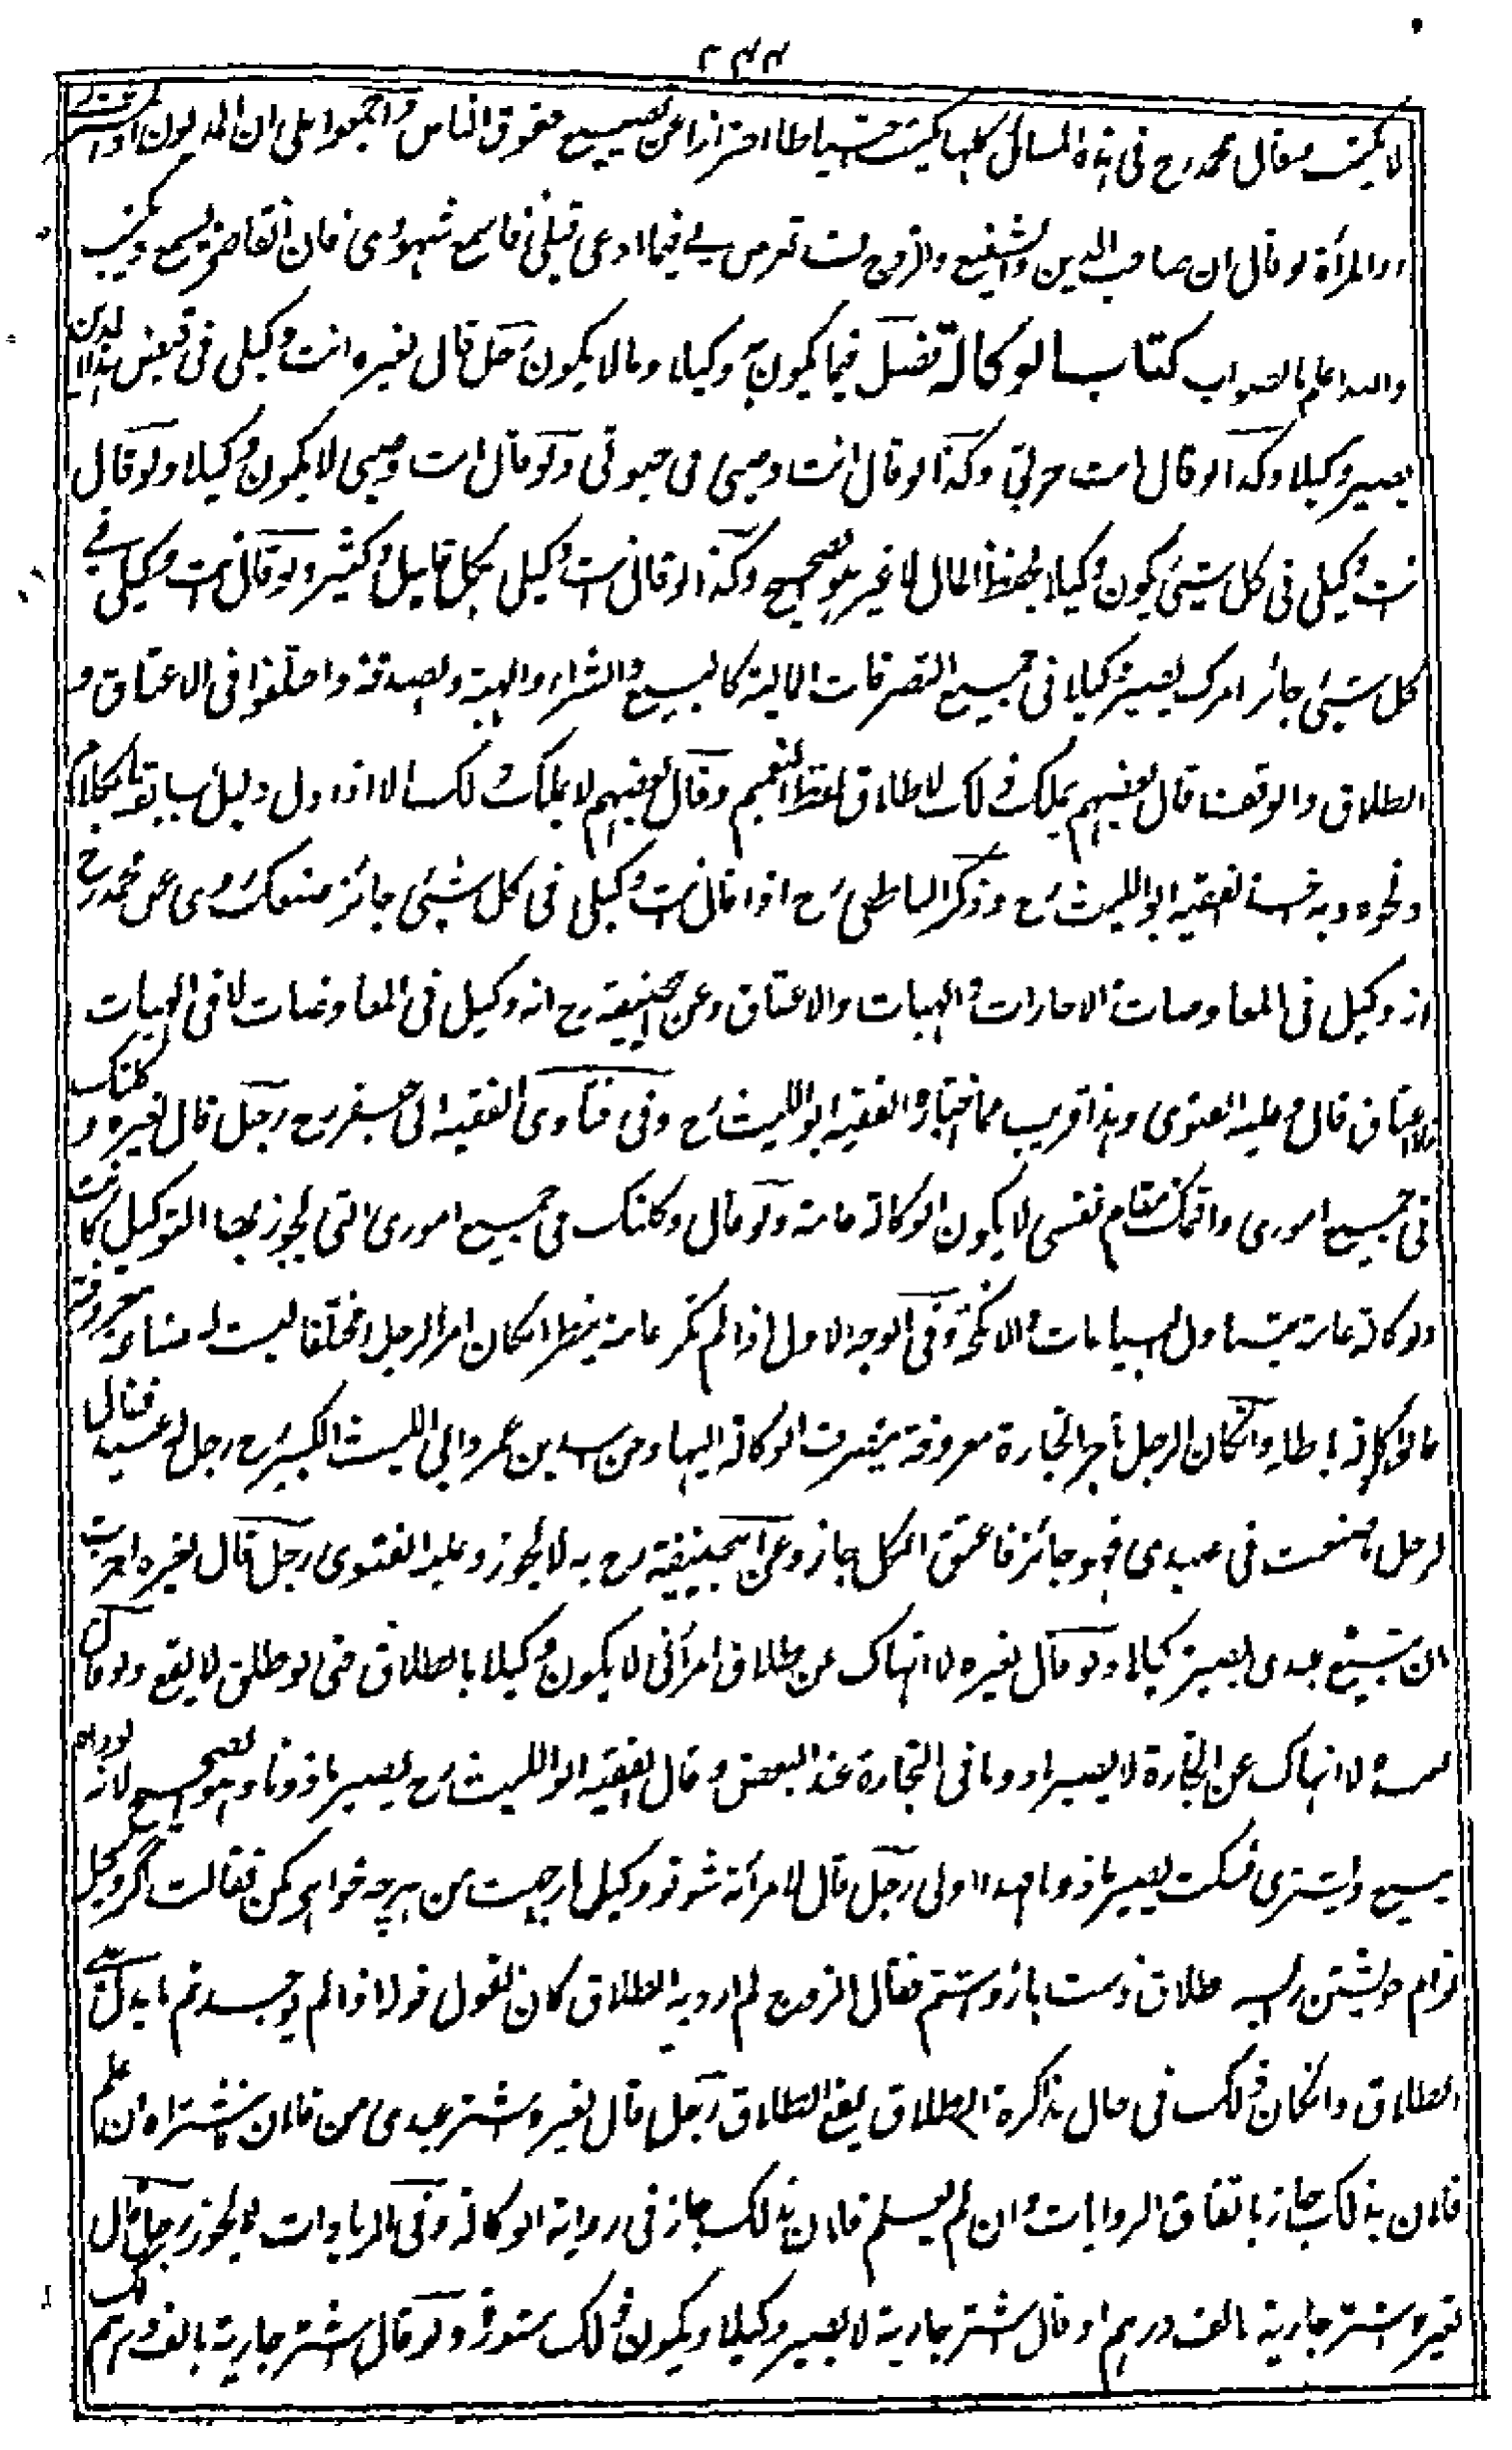 ٢٤٤
لا يكتب وقال محمد رح فى هذه المسائل كلها يكتب احتياطا احترازا عن تضييع حقوق الناس واجمعوا على ان المديون او
او المرأة لو قال ان صاحب الدين والشفيع والزوج تعرض لي فيما ادعى قبلي فاسمع شهودى فان القاضى يسمع ويكتب
والله اعلم بالصواب كتاب الوكالة فصل فيما يكون به وكيلا وما لا يكون رجل قال لغيره انت وكيلى فى قبض هذا الدين
يصير وكيلا وكذا لو قال انت جريي وكذا لو قال انت وصيى فى حيوتى ولو قال انت وصيى لا يكون وكيلا ولو قال
انت وكيلى فى كل شيئ يكون وكيلا بحفظ المال لا غير هو الصحيح وكذا لو قال انت وكيلى بكل قليل وكثير ولو قال انت وكيلى في
كل شيئ جائز امرك يصير وكيلا فى جميع التصرفات المالية كالبيع والشراء والهبة والصدقة واختلفوا فى الاعتاق و
الطلاق والوقف قال بعضهم يملك ذلك لاطلاق لفظ التعميم وقال بعضهم لا يملك ذلك الا اذا دل دليل سابقة الكلام
ونحوه وبه اخذ الفقيه ابو الليث رح وذكر الناطفى رح اذا قال انت وكيلى فى كل شيئ جائز صنعك روى عن محمد رح
انه وكيل فى المعاوضات والاجارات والهبات والاعتاق وعن ابى حنيفة رح انه وكيل فى المعاوضات لا فى الهبات
والاعتاق قال وعليه الفتوى وهذا قريب مما اختاره الفقيه ابو الليث رح وفى فتاوى الفقيه ابى جعفر رح رجل قال لغيره وكلتك
فى جميع امورى واقمتك مقام نفسى لا يكون الوكالة عامة ولو قال وكلتك فى جميع امورى التى يجوز بها التوكيل كانت
الوكالة عامة يتناول البياعات والانكحة وفى الوجه الاول اذا لم تكن عامة ينظر ان كان امر الرجل مختلفا ليست له صناعة معروفة
فالوكالة باطلة وان كان الرجل تاجر التجارة معروفة ينصرف الوكالة اليها وعن اسد بن عمرو ابى الليث الكبير رح رجل له عبيد فقال
لرجل ما صنعت فى عبيدى فهو جائز فاعتق الكل جاز وعن ابيحنيفة رح انه لا يجوز وعليه الفتوى رجل قال لغيره احببت
ان تبيع عبدى يصير وكيلا ولو قال لغيره لا انهاك عن طلاق امرأتى لا يكون وكيلا بالطلاق حتى لو طلق لا يقع ولو قال
لعبده لا انهاك عن التجارة لا يصير مأذونا فى التجارة عند البعض وقال الفقيه ابو الليث رح يصير ماذونا وهو الصحيح لانه لو رآه
يبيع ويشترى فسكت يصير ماذونا فهذا اولى رجل قال لامرأته شو تو وكيل از جهت من هرچه خواهى كن فقالت اگر وكيل
توام خويشتن را بسه طلاق دست باز داشتم فقال الزوج لم ارد به الطلاق كان القول قوله اذا لم يوجد ثم ما يدل على
الطلاق وان كان ذلك فى حال مذاكرة الطلاق يقع الطلاق رجل قال لغيره اشتر عبدى من فلان فاشتراه ان علم
فلان بذلك جاز باتفاق الروايات وان لم يعلم فلان بذلك جاز فى رواية الوكالة وفى الزيادات لا يجوز رجل قال
لغيره اشتر جارية بالف درهم او قال اشتر جارية لا يصير وكيلا ويكون ذلك مشورة ولو قال اشتر جارية بالف درهم لك